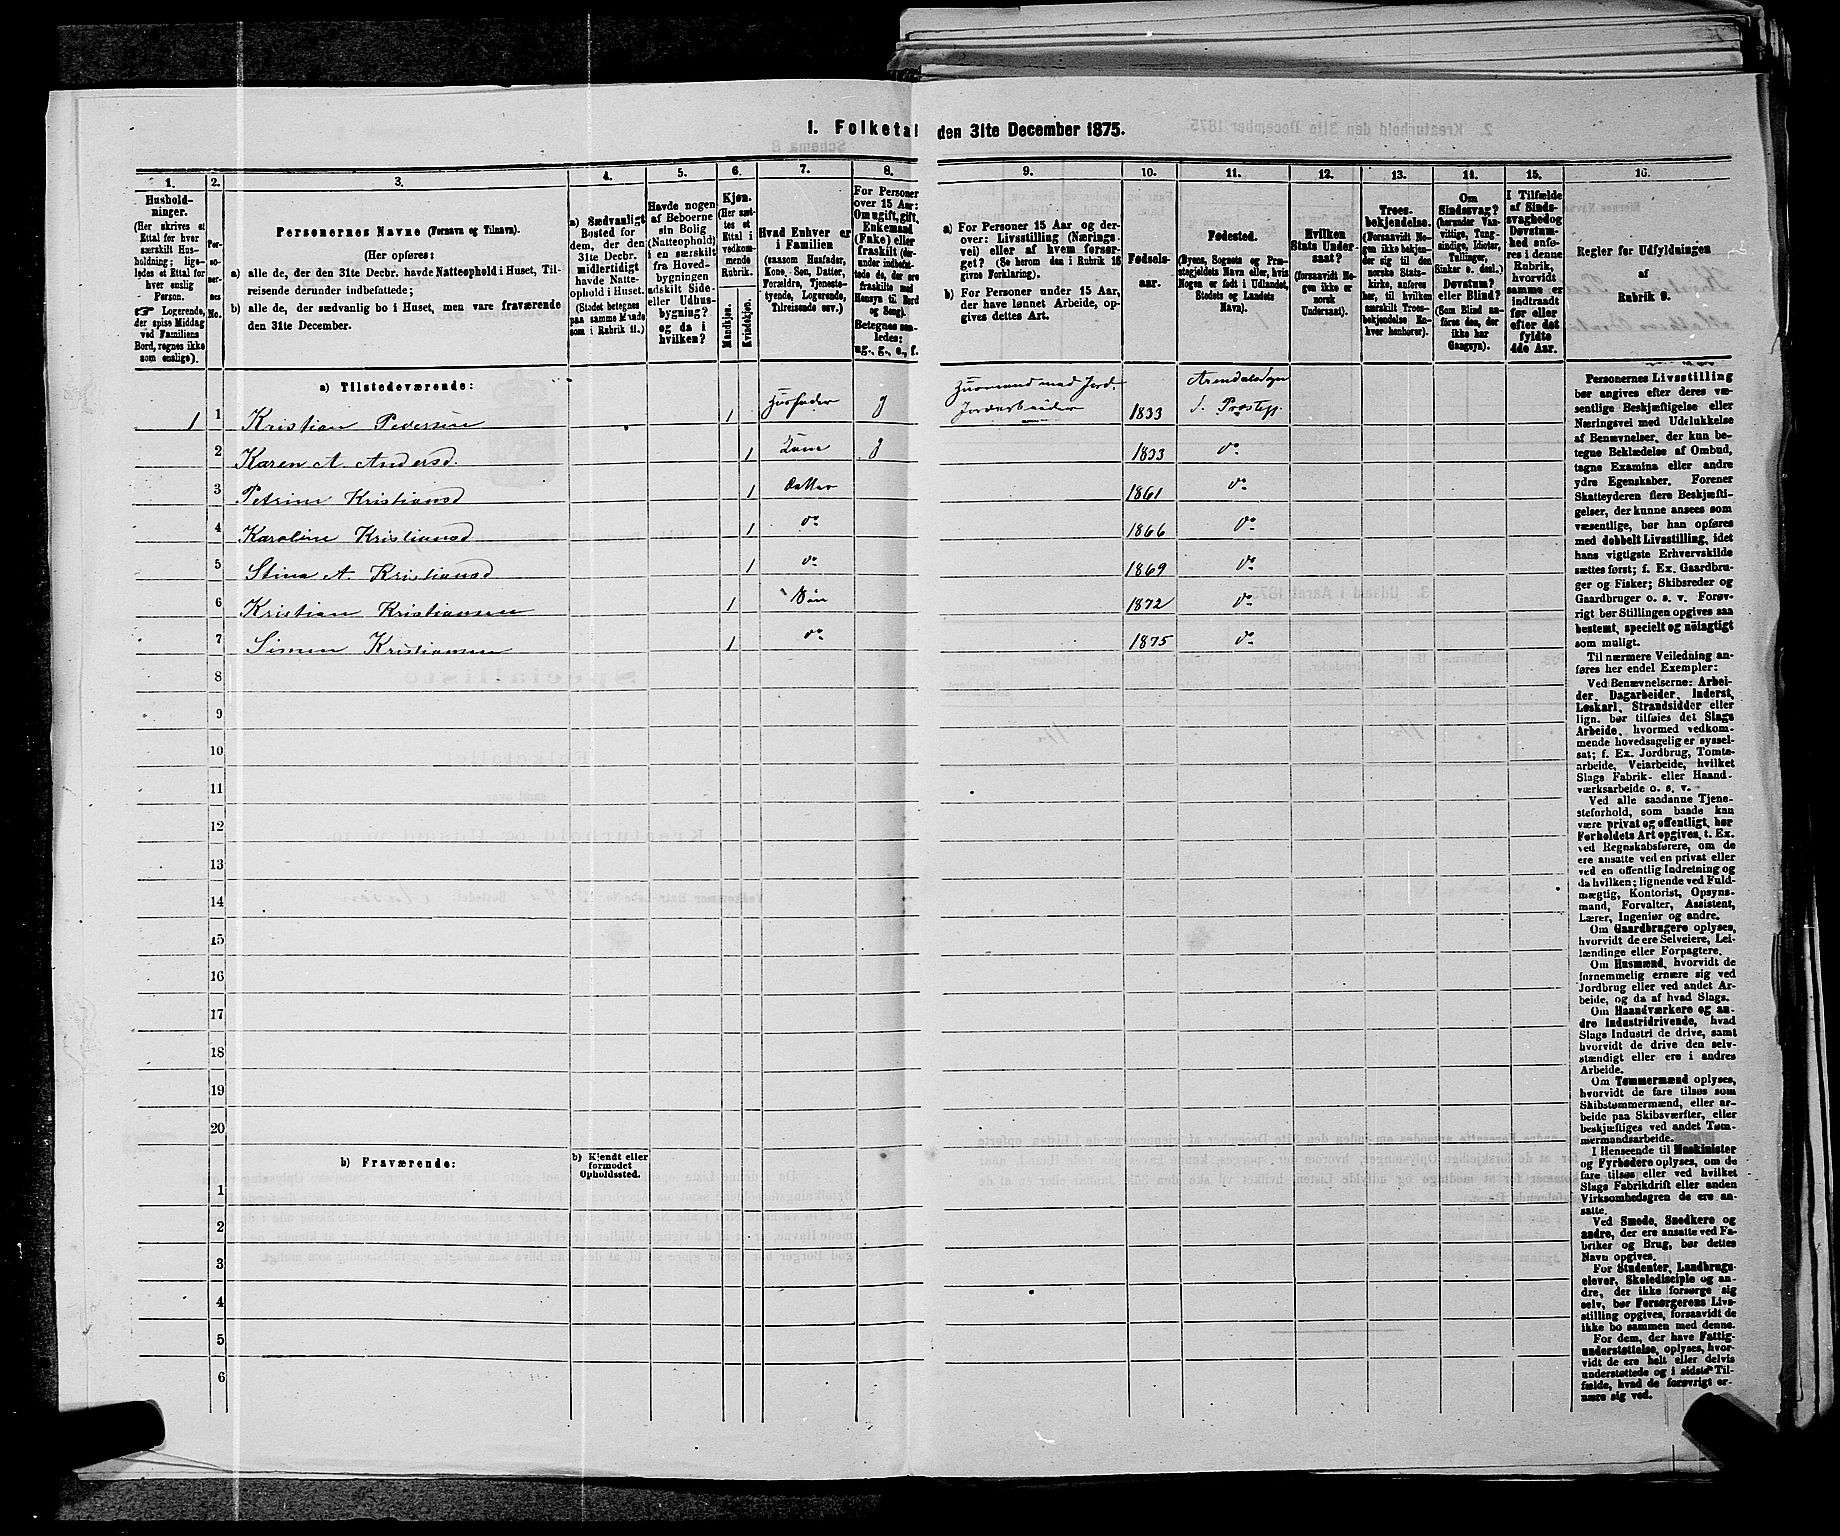 I. Folketal den 31te December 1875.
1.
2.
3.
4.
5.
6.
7.
8.
9.
10.
11.
12.
13.
14.
15.
16.
Hushold-
ninger.
(Her skrives et
Ettal for hver
særskilt Hus-
holdning; lige-
ledes et Ettal for
hver enslig
Person.
Logerende,
der spise Middag
ved Familiens
Bord, regnes ikke
som enslige).
Per-
so-
ner-
nes
No.
Personernes Navne (Fornavn og Tilnavn).
(Her opføres:
a) alle de, der den 31te Decbr. havde Natteophold i Huset, Til-
reisende derunder indbefattede;
b) alle de, der sædvanlig bo i Huset, men vare fraværende
den 31te December.
a) Sædvanligt
Bosted for
dem, der den
31te Decbr.
midlertidigt
havde Natte-
ophold i Huset.
(Stedet betegnes
paa samme Maade
som i Rubrik 11.)
Havde nogen
af Beboerne
sin Bolig
(Natteophold)
i en særskilt
fra Hoved-
bygningen
adskilt Side-
eller Udhus-
bygning?
og da i
hvilken?
Kjøn.
(Her sæt-
tes et
Ettal i
vedkom-
mende
Rubrik.
Mandkjøn.
Kvindekjøn.
Hvad Enhver er
i Familien
(saasom Husfader,
Kone, Søn, Datter,
Forældre, Tjeneste-
tyende, Logerende,
Tilreisende osv.)
For Personer
over 15 Aar:
Om ugift, gift,
Enkemand
(Enke) eller
fraskilt (der-
under indbefat-
tede de, der ere
fraskilte med
Hensyn til Bord
og Seng).
Betegnes saa-
ledes:
ug., g., e., f.
a) For Personer 15 Aar og der-
over: Livsstilling (Nærings-
vei) eller af hvem forsør-
get? (Se herom den i Rubrik 16
givne Forklaring).
b) For Personer under 15 Aar,
der have lønnet Arbeide, op-
gives dettes Art.
Fødsels-
aar.
Fødested.
(Byens, Sognets og Præ-
stegjeldets Navn eller, hvis
Nogen er født i Udlandet,
Stedets og Landets
Navn).
Hvilken
Stats Under-
saat?
(forsaavidt No-
gen ikke er
norsk
Undersaat).
Troes-
bekjendelse.
(Forsaavidt No-
gen ikke bekjen-
der sig til den
norske Stats-
kirke, anføres
her, til hvilken
særskilt Troes-
bekjendelse En-
hver henhører).
Om
Sindssvag?
(herunder Van-
vittige, Tung-
sindige, Idioter,
Tullinger,
Sinker o. desl.)
Døvstum?
eller Blind?
(Som Blind an-
føres den, der
ikke har
Gangsyn).
I Tilfælde
af Sinds-
svaghed og
Døvstum-
hed anfø-
res i denne
Rubrik,
hvorvidt
samme er
indtraadt
før eller
efter det
fyldte
4de Aar.
Regler for Udfyldningen
af
Rubrik 9.
a) Tilstedeværende:
1 1 Kristian Pedersen 1 Husfader g Husmand med Jord. Jordarbeider 1833 Arendals Lgn d. Præstegj.
2 Karen A. Andersd. 1 Kone g 1833 do
3 Petrine Kristiansd 1 datter 1861 do
4 Karoline Kristiansd 1 do 1866 do
5 Stina A. Kristiansd 1 do 1869 do
6 Kristian Kristiansen 1 Søn 1872 do
7 Simen Kristiansen 1 do 1875 do
8
9
10
11
12
13
14
15
16
17
18
19
20
b) Fraværende:
b) Kjendt eller
formodet
Opholdssted.
1
2
3
4
5
6
Personernes Livsstilling
bør angives efter deres væ-
sentlige Beskjæftigelse eller
Næringsvei med Udelukkelse
af Benævnelser, der kun be-
tegne Beklædelse af Ombud,
tagne Examina eller andre
ydre Egenskaber. Forener
Skatteyderen flere Beskjæfti-
gelser, der kunne ansees som
væsentlige, bør han opføres
med dobbelt Livsstilling, idet
hans vigtigste Erhvervskilde
sættes først; f. Ex. Gaardbru-
ger og Fisker; Skibsreder og
Gaardbruger o. s. v. Forøv-
rigt bør Stillingen opgives saa
bestemt, specielt og nøiagtigt
som muligt.
Til nærmere Veiledning an-
føres her endel Exempler:
Ved Benævnelserne: Arbei-
der, Dagarbeider, Inderst,
Løskarl, Strandsidder eller
lign. bør tilføies det Slags
Arbeide, hvormed vedkom-
mende hovedsagelig er syssel-
sat; f. Ex. Jordbrug, Tomte-
arbeide, Veiarbeide, hvilket
Slags Fabrik- eller Haand-
værksarbeide o. s. v.
Ved alle saadanne Tjene-
steforhold, som baade kan
være privat og offentligt, bør
Forholdets Art opgives, t. Ex.
ved Regnskabsførere, om de
ere ansatte ved en privat eller
ved en offentlig Indretning og
da hvilken; lignende ved Fuld-
mægtig, Kontorist, Opsyns-
mand, Forvalter, Assistent,
Lærer, Ingeniør og andre.
Om Gaardbrugere oplyses,
hvorvidt de ere Selveiere, Lei-
lændinge eller Forpagtere.
Om Husmænd, hvorvidt de
fornemmelig ernære sig ved
Jordbrug eller ved andet Ar-
beide, og da af hvad Slags.
Om Haandværkere og an-
dre Industridrivende, hvad
Slags Industri de drive, samt
hvorvidt de drive den selv-
stændigt eller ere i andres
Arbeide.
Om Tømmermænd oplyses,
hvorvidt de fare tilsøs som
Skibstømmermænd, eller ar-
beide paa Skibsværfter, eller
beskjæftiges ved andet Tøm-
mermandsarbeide.
I Henseende til Maskinister
og Fyrbødere oplyses, om de
fare tilsøs eller ved hvilket
Slags Fabrikdrift eller anden
Virksomhedsgren de ere an-
satte.
Ved Smede, Snedkere og
andre, der ere ansatte ved Fa-
briker og Brug, bør dettes
Navn opgives.
For Studenter, Landbrugs-
elever, Skoledisciple og an-
dre, der ikke forsørge sig
selv, bør Forsørgerens Livs-
stilling opgives, forsaavidt de
ikke bo sammen med denne.
For dem, der have Fattig-
understøttelse, oplyses, hvor-
vidt de ere helt eller delvis
understøttede og i sidste Til-
fælde, hvad de forøvrigt er-
nære sig ved.